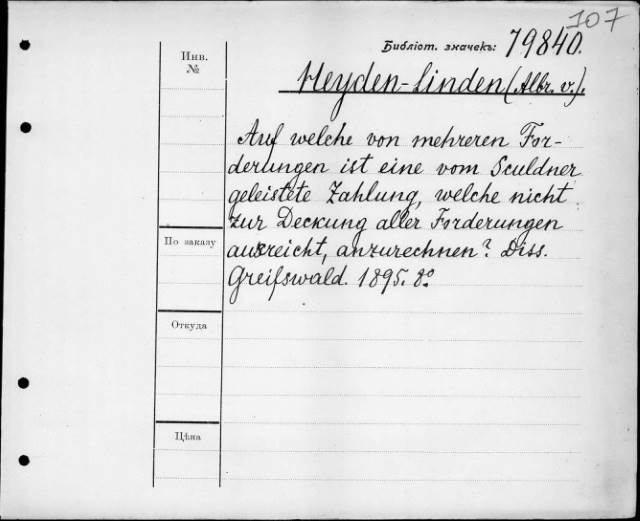 107
Библіот. значекъ: 79840.
Инв.
№
Heyden-Linden (Albr. v.).
Auf welche von mehreren For-
derungen ist eine vom Sculdner
geleistete Zahlung, welche nicht
zur Deckung aller Forderungen
По заказу
ausreicht, anzurechnen? Diss.
Greifswald. 1895. 8°.
Откуда
Цѣна